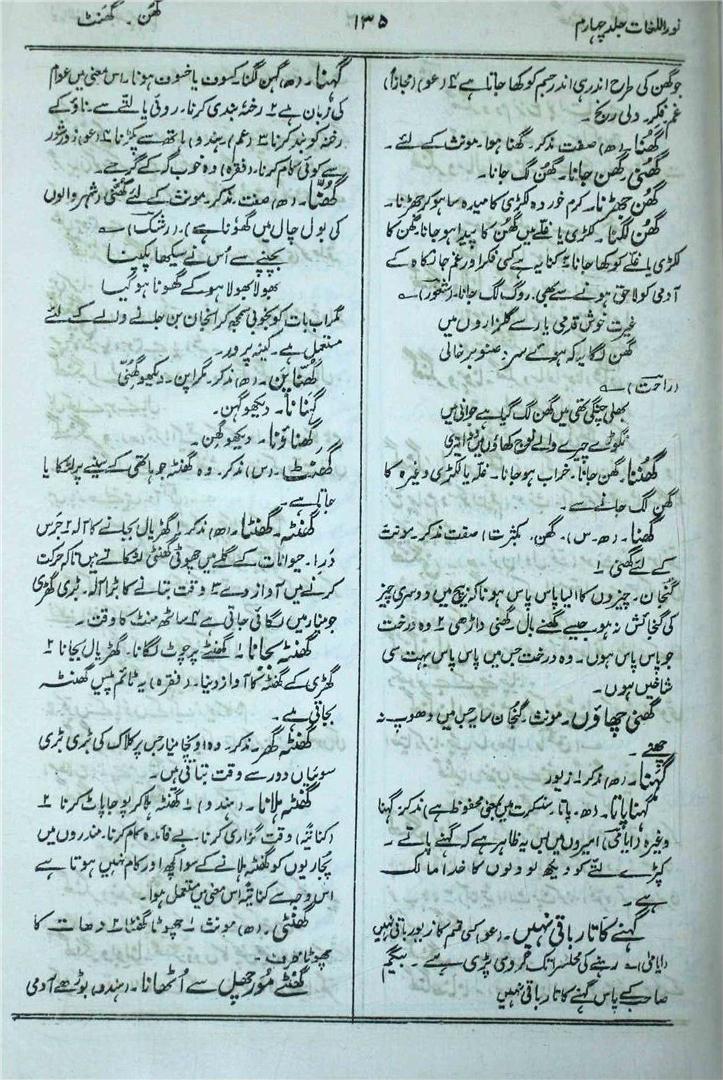 نور اللغات جلد چہارم
۱۳۵
گھن ۔ گھنٹ
جو گھن کی طرح اندر ہی اندر جسم کو کھا جاتا ہے ۴ (عو) (مجازاً)
غم۔ فکر۔ دلی رنج۔
گھُنا۔ (ھ) صفت مذکر۔ گھُنا ہوا۔ مونث کے لئے۔
گھُنی۔ گھن جانا۔ گھُن لگ جانا۔
گھُن جھڑنا۔ کرم خوردہ لکڑی کا میدہ سا ہو کر جھڑنا۔
گھُن لگنا۔ لکڑی یا غلّے میں گھُن کا پیدا ہو جانا۔ گھن کا
لکڑی یا غلّے کو کھا جانا ۲ کنایہ ہے کسی فکر اور غم جانکاہ کے
آدمی کو لاحق ہونے سے بھی۔ روگ لگ جانا۔ (شعور) ؎
غیرت خوش قدمی یار سے گلزاروں میں
گھن لگا یہ کہ ہوئے سرو صنوبر خالی
(راحت) ؎
بھلی چنگی تھی میں گھن لگ گیا ہے جوانی میں
نگوڑے چیرے والے لوح کھاؤں میں
گھُننا۔ گھن جانا۔ خراب ہو جانا۔ غلہ یا لکڑی وغیرہ کا
گھن لگ جانے سے۔
گھنا۔ (ھ۔ س)۔ گھن۔ بکثرت) صفت مذکر۔ مونث
کے لئے گھنی ۱
گنجان۔ چیزوں کا ایسا پاس پاس ہونا کہ بیچ میں دوسری چیز
کی گنجائش نہ ہو۔ جیسے گھنے بال۔ گھنی داڑھی ۲ وہ درخت
جو پاس پاس ہوں۔ وہ درخت جس میں پاس پاس بہت سی
شاخیں ہوں۔
گھنی چھاؤں۔ مونث۔ گنجان سایہ جس میں دھوپ نہ
چھنے۔
گہنا۔ (ھ) مذکر۔ زیور
گہنا پاتا۔ (ھ۔ پاتا۔ سنسکرت میں بمعنی محفوظ ہے) مذکر۔ گہنا
وغیرہ (ایامیٰ) امیروں میں بس یہ ظاہر ہے کہ گہنے پاتے۔
کپڑے لتّے کو دیکھ لو دلوں کا خدا مالک
ہے۔
گہنے کا تار باقی نہیں۔ (عو) کسی قسم کا زیور باقی نہیں
(ایامیٰ) رہنے کی محلسرا تک گروی پڑی ہے۔ بیگم
صاحب کے پاس گہنے کا تار باقی نہیں
گہنا۔ (ھ) گہن لگنا۔ کسوف یا خسوف ہونا۔ اس معنی میں عوام
کی زبان ہے ۲ رخنہ بندی کرنا۔ روئی یا لتّے سے ناؤ کے
رخنہ کو بند کرنا ۳ (عم) ہندو) ہاتھ سے پکڑنا ۴ (عو) زور شور
سے کوئی کام کرنا۔ (فقرہ) وہ خوب گہہ کے گرجے۔
گھُنّا۔ (ھ) صفت۔ مذکر۔ مونث کے لئے گھُنّی (شہر والوں
کی بول چال میں گھونا ہے)۔ (رشک) ؎
بچپنے سے اُس نے سیکھا پکھنا
بھولا بھولا ہو کے گھونا ہو گیا
مگر اب بات کو بخوبی سمجھ کر انجان بن جانے والے کے لئے
مستعمل ہے۔ کینہ پرور۔
گھُنّا پن۔ (ھ) مذکر۔ مکراپن۔ دیکھو گھُنّی
گہنانا۔ دیکھو گہن۔
گھناؤنا۔ دیکھو گھن۔
گھنٹا۔ (س) مذکر۔ وہ گھنٹہ جو ہاتھی کے سینے پر لٹکایا
جاتا ہے۔
گھنٹہ۔ گھنٹا۔ (ھ) مذکر ۱ گھڑیال بجانے کا آلہ ۲ جرس
درا۔ حیوانات کے گلے میں چھوٹی گھنٹی لٹکاتے ہیں تاکہ حرکت
کرنے میں آواز دے ۳ وقت بتانے کا بڑا آلہ۔ بڑی گھڑی
جو مینار میں لگائی جاتی ہے ۴ ساٹھ منٹ کا وقت۔
گھنٹہ بجانا ۱ گھنٹے پر چوٹ لگانا۔ گھڑیال بجانا ۲
گھڑی کے گھنٹہ کا آواز دینا۔ (فقرہ) یہ ٹائم پیس گھنٹہ
بجاتی ہے۔
گھنٹہ گھر۔ مذکر۔ وہ اونچا مینار جس پر کلاک کی بڑی بڑی
سوئیاں دور سے وقت بتاتی ہیں۔
گھنٹہ ہلانا۔ (ہندو) ۱ گھنٹہ ہلا کر پوجا پاٹ کرنا ۲
(کنایۃً) وقت گزاری کرنا۔ بے فائدہ کام کرنا۔ مندروں میں
پجاریوں کو گھنٹہ ہلانے کے سوا کچھ اور کام نہیں ہوتا ہے
اس وجہ سے کنایۃً اس معنی میں مستعمل ہوا۔
گھنٹی۔ (ھ) مونث ۱ چھوٹا گھنٹا ۲ دھات کا
چھوٹا ظرف۔
گھنٹے مورچھل سے اُٹھانا۔ (ہندو) بوڑھے آدمی